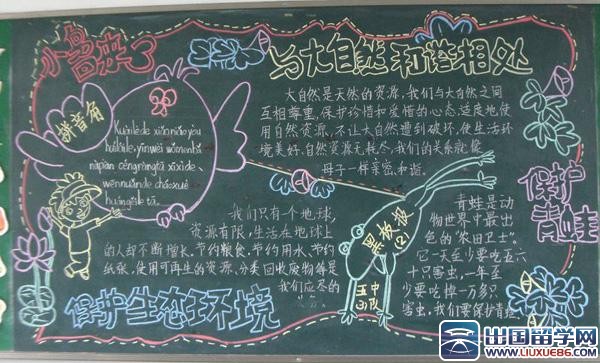 小鸟来了
拼音角
Kuàilède xiǎoniǎo yào
huíkile, yīnwèi wǒmen bǎ
nàpiàn céngjīngtā xǐxide、
wēnnuǎnde cháoxué
huángěile tā.
与大自然和谐相处
大自然是天然的资源,我们与大自然之间
互相尊重,保护珍惜和爱惜的心态,适度地使
用自然资源,不让大自然遭到破坏,使生活环
境美好,自然资源无耗尽,我们的关系就像
母子一样亲密、和谐。
我们只有一个地球,
资源有限,生活在地球上
的人却不断增长,节约粮食,节约用水,节约
纸张,使用可再生的资源,分类回收废物等是
我们应尽的
保护生态环境
黑板报
(2)
五中
山队
保护
青蛙
青蛙是动
物世界中最出
色的“农田卫士”。
它一天至少要吃五六
十只害虫,一年至
少要吃掉一万多只
害虫,我们要保护青蛙
出国留学网
www.liuxue86.com